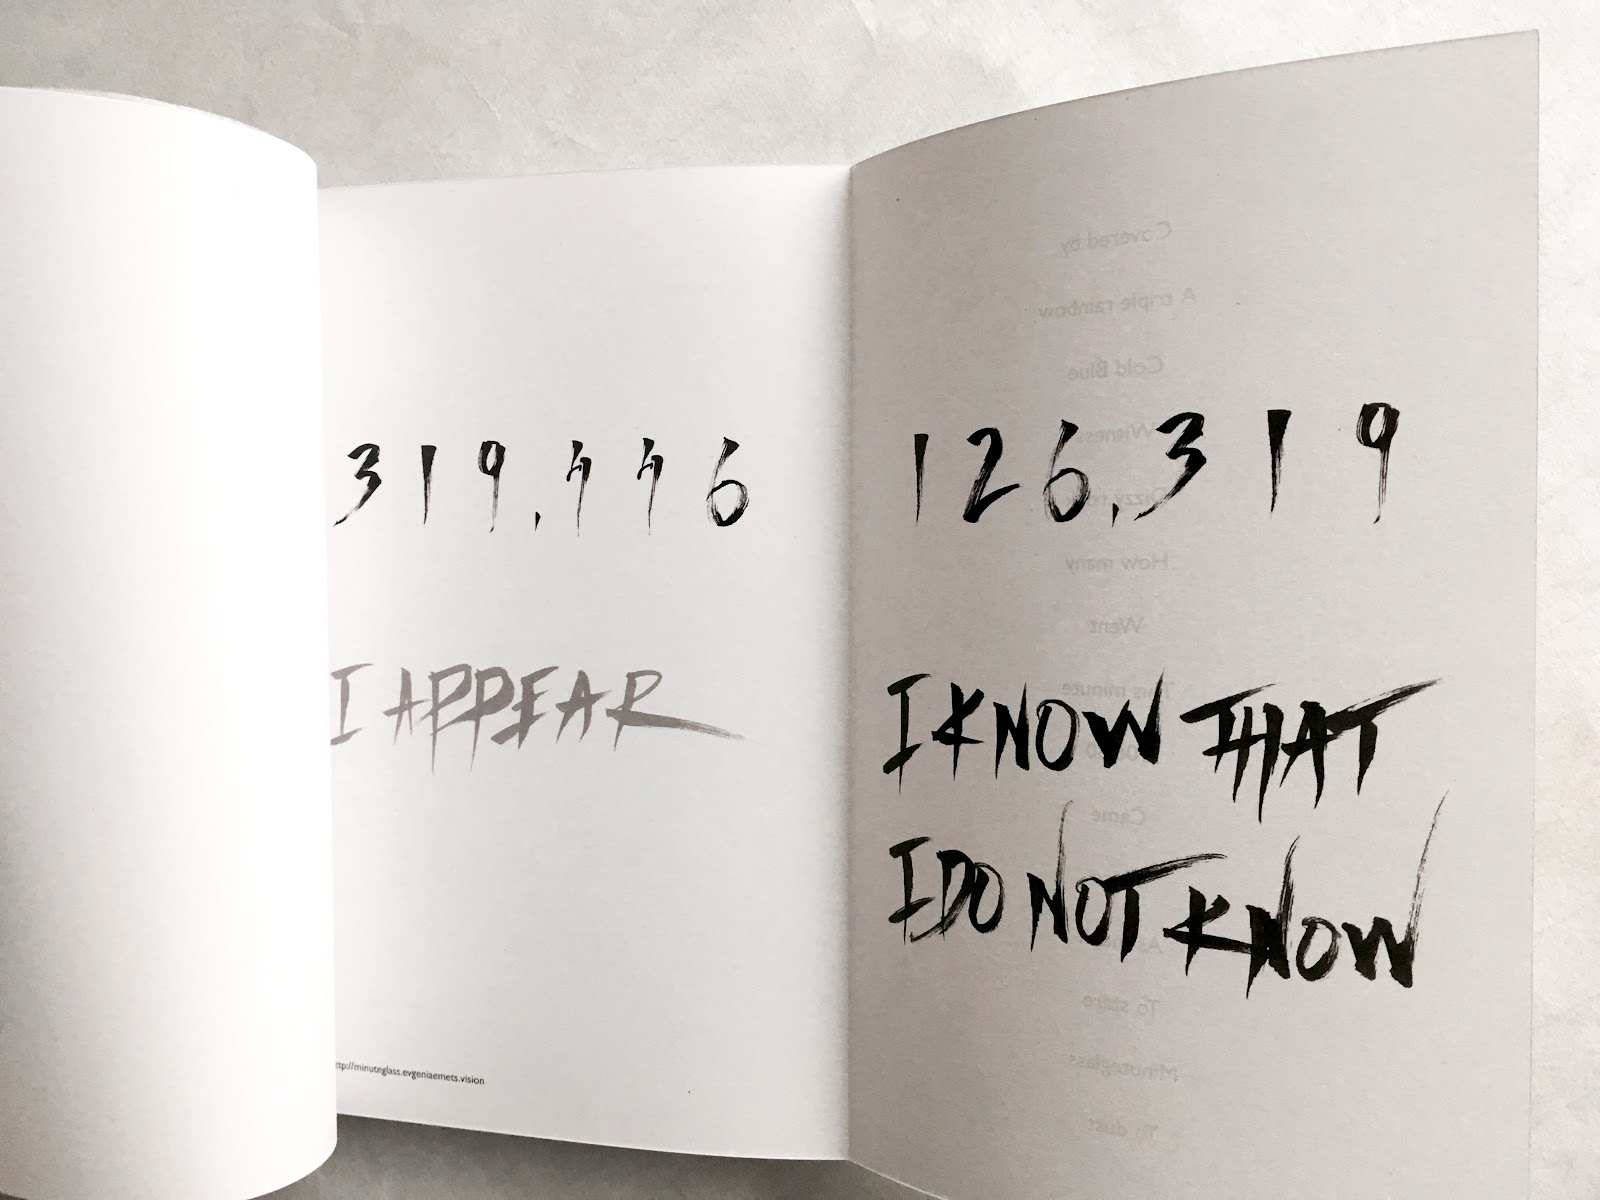 319,446
I APPEAR
ttp://minuteglass.evgeniaemets.vision
126,319
I KNOW THAT
I DO NOT KNOW
Covered by
A triple rainbow
Cold Blue
Witness
Dizzy
How many
Went
This minute
Came
To stare
Minuteglass
To dust